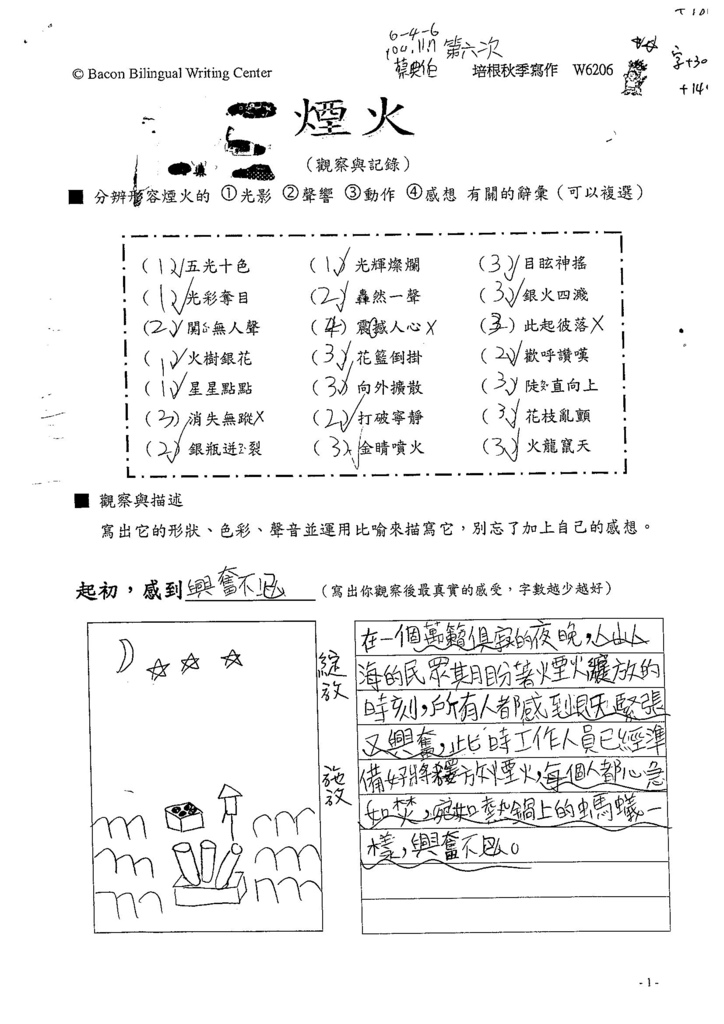 6-4-6
第六次
© Bacon Bilingual Writing Center
培根秋季寫作 W6206
字+30
+140
煙火
（觀察與記錄）
■ 分辨形容煙火的 ①光影 ②聲響 ③動作 ④感想 有關的辭彙（可以複選）
(1) 五光十色 (1) 光輝燦爛 (3) 目眩神搖
(1) 光彩奪目 (2) 轟然一聲 (3) 銀火四濺
(2) 闃無人聲 (4) 震撼人心 (3) 此起彼落
(1) 火樹銀花 (3) 花籃倒掛 (2) 歡呼讚嘆
(1) 星星點點 (3) 向外擴散 (3) 陡直向上
(3) 消失無蹤 (2) 打破寧靜 (3) 花枝亂顫
(2) 銀瓶迸裂 (3) 金睛噴火 (3) 火龍竄天
■ 觀察與描述
寫出它的形狀、色彩、聲音並運用比喻來描寫它，別忘了加上自己的感想。
起初，感到興奮不已（寫出你觀察後最真實的感受，字數越少越好）
綻放
施放
在一個萬籟俱寂的夜晚，人山人
海的民眾期盼著煙火綻放的
時刻，所有人都感到很緊張
又興奮，此時工作人員已經準
備好將釋放煙火，每個人都心急
如焚，宛如熱鍋上的螞蟻一
樣，興奮不已。
- 1 -